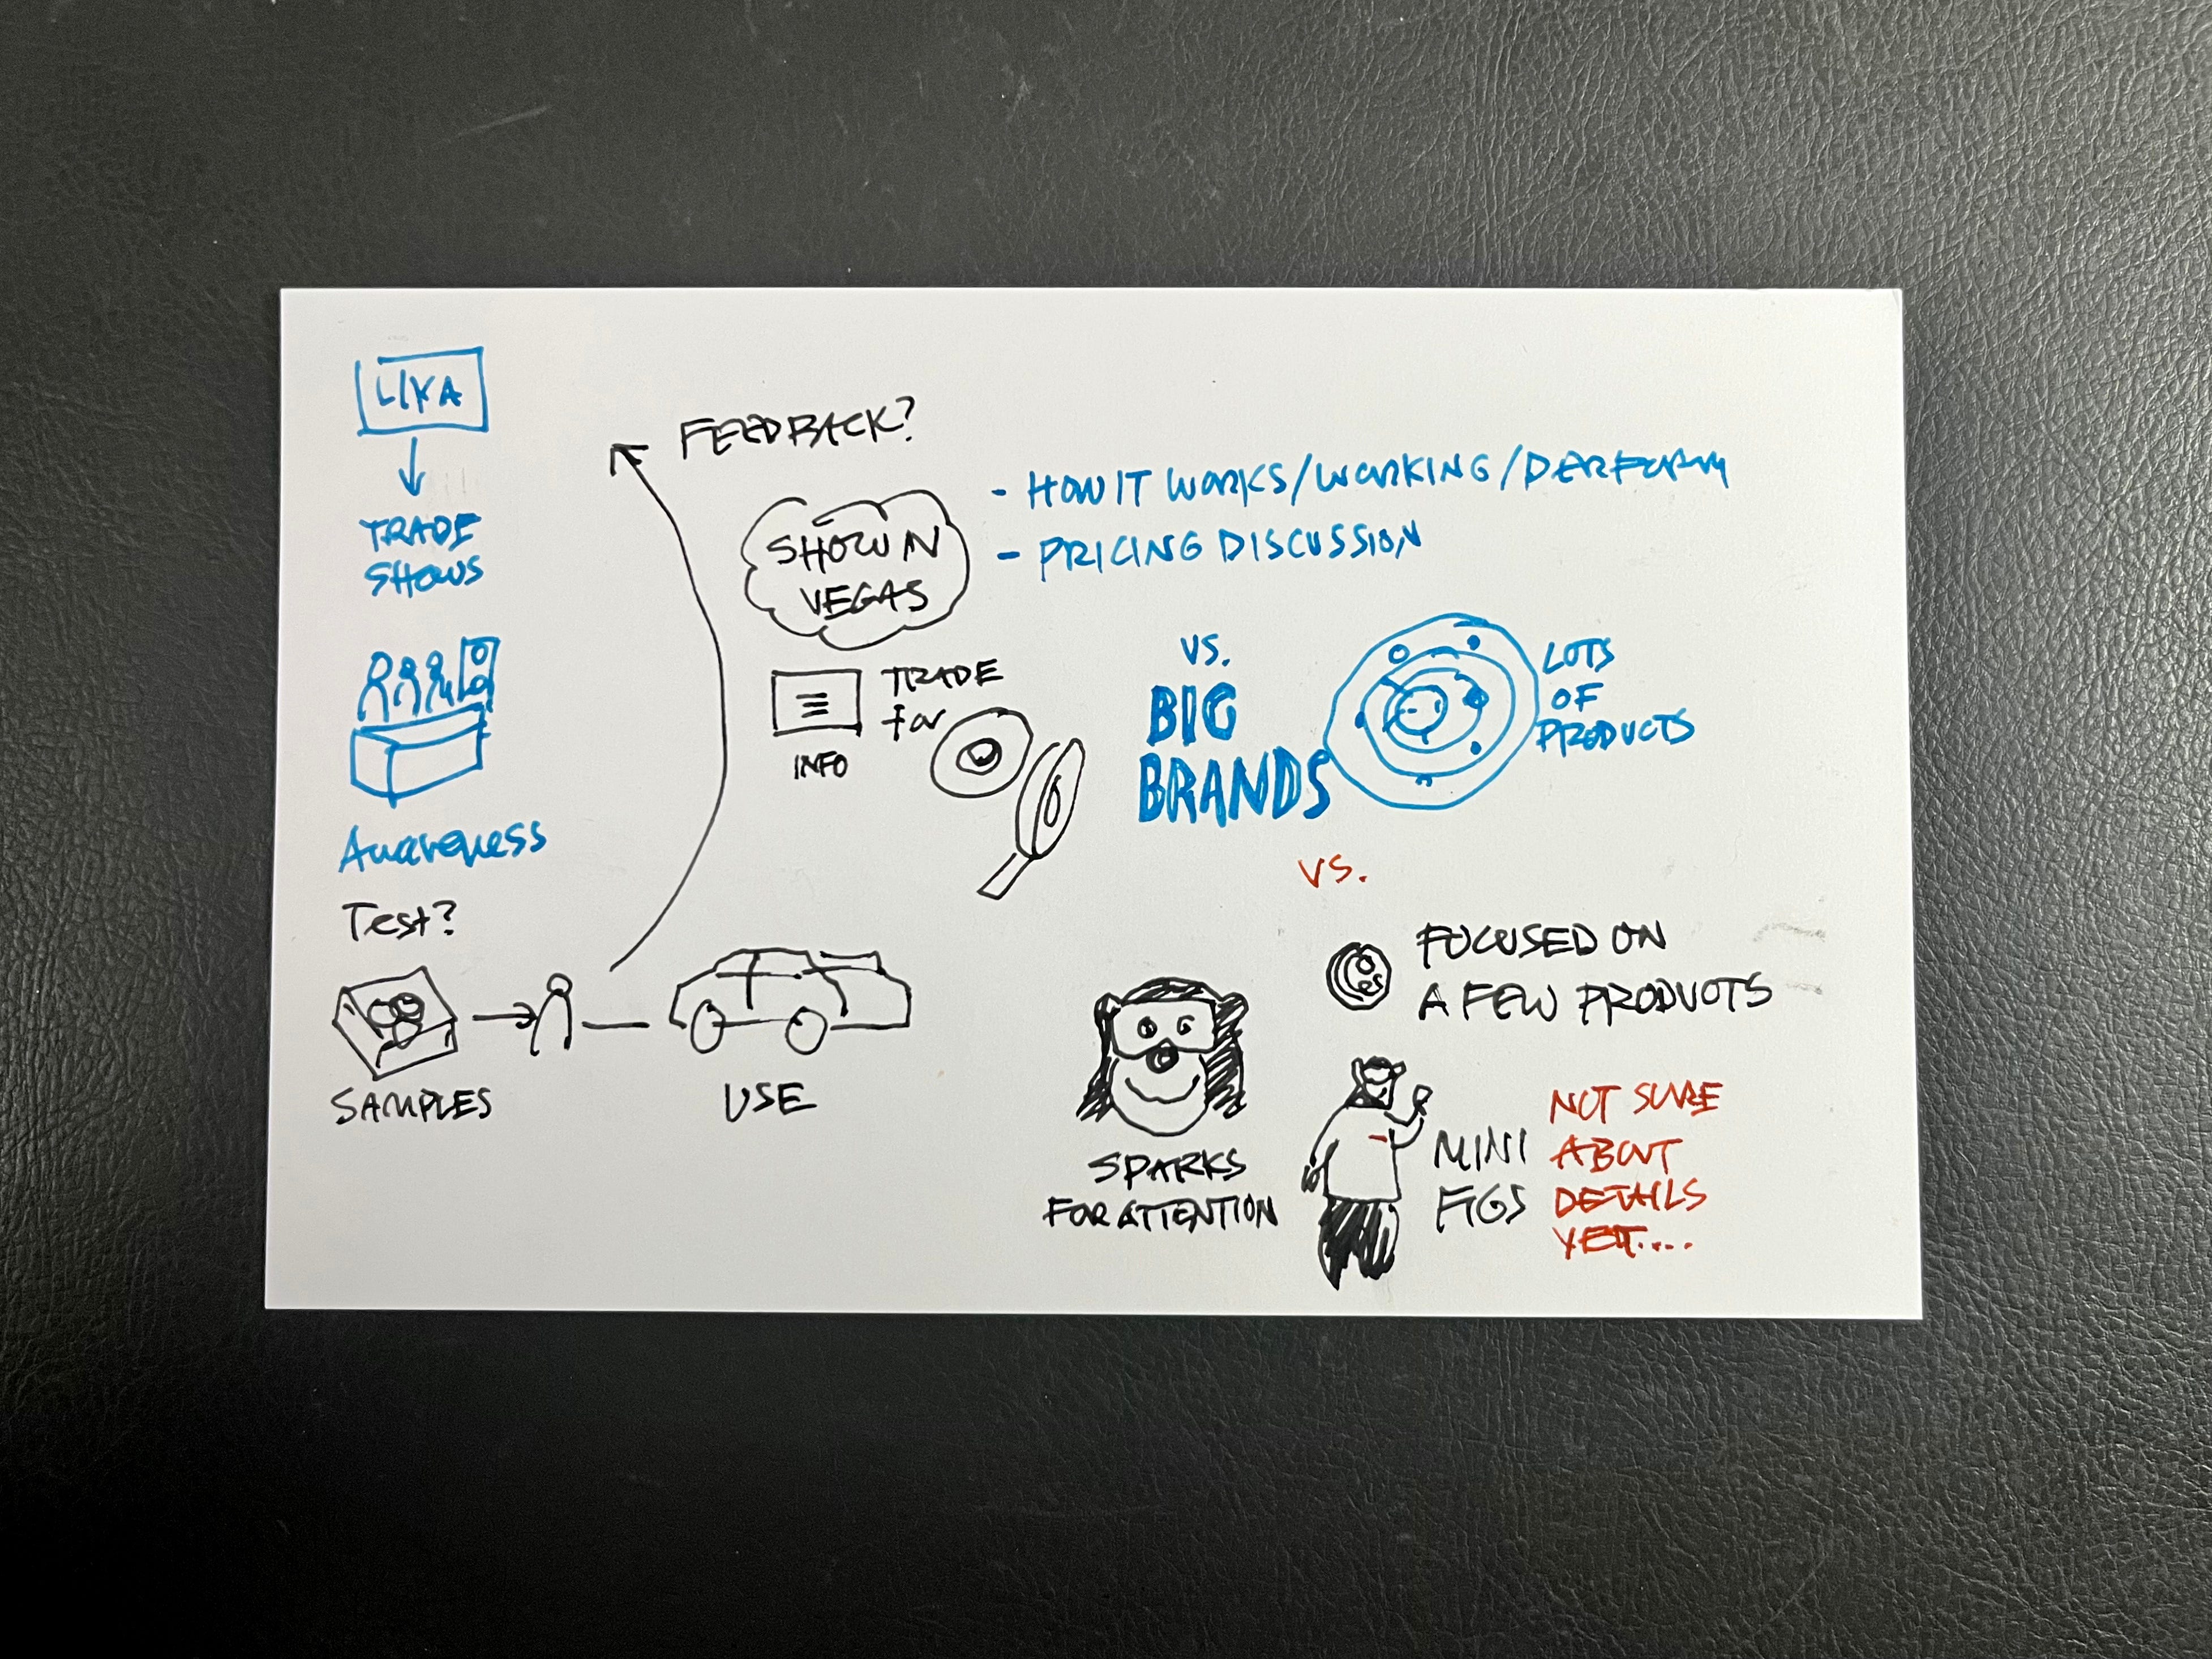 LIKA
TRADE
SHOWS
Awareness
Test?
SAMPLES
USE
FEEDBACK?
SHOW IN
VEGAS
- HOW IT WORKS/WORKING/PERFORM
- PRICING DISCUSSION
INFO
TRADE
for
VS.
BIG
BRANDS
LOTS
OF
PRODUCTS
VS.
FOCUSED ON
A FEW PRODUCTS
SPARKS
FOR ATTENTION
MINI
FIGS
NOT SURE
ABOUT
DETAILS
YET....